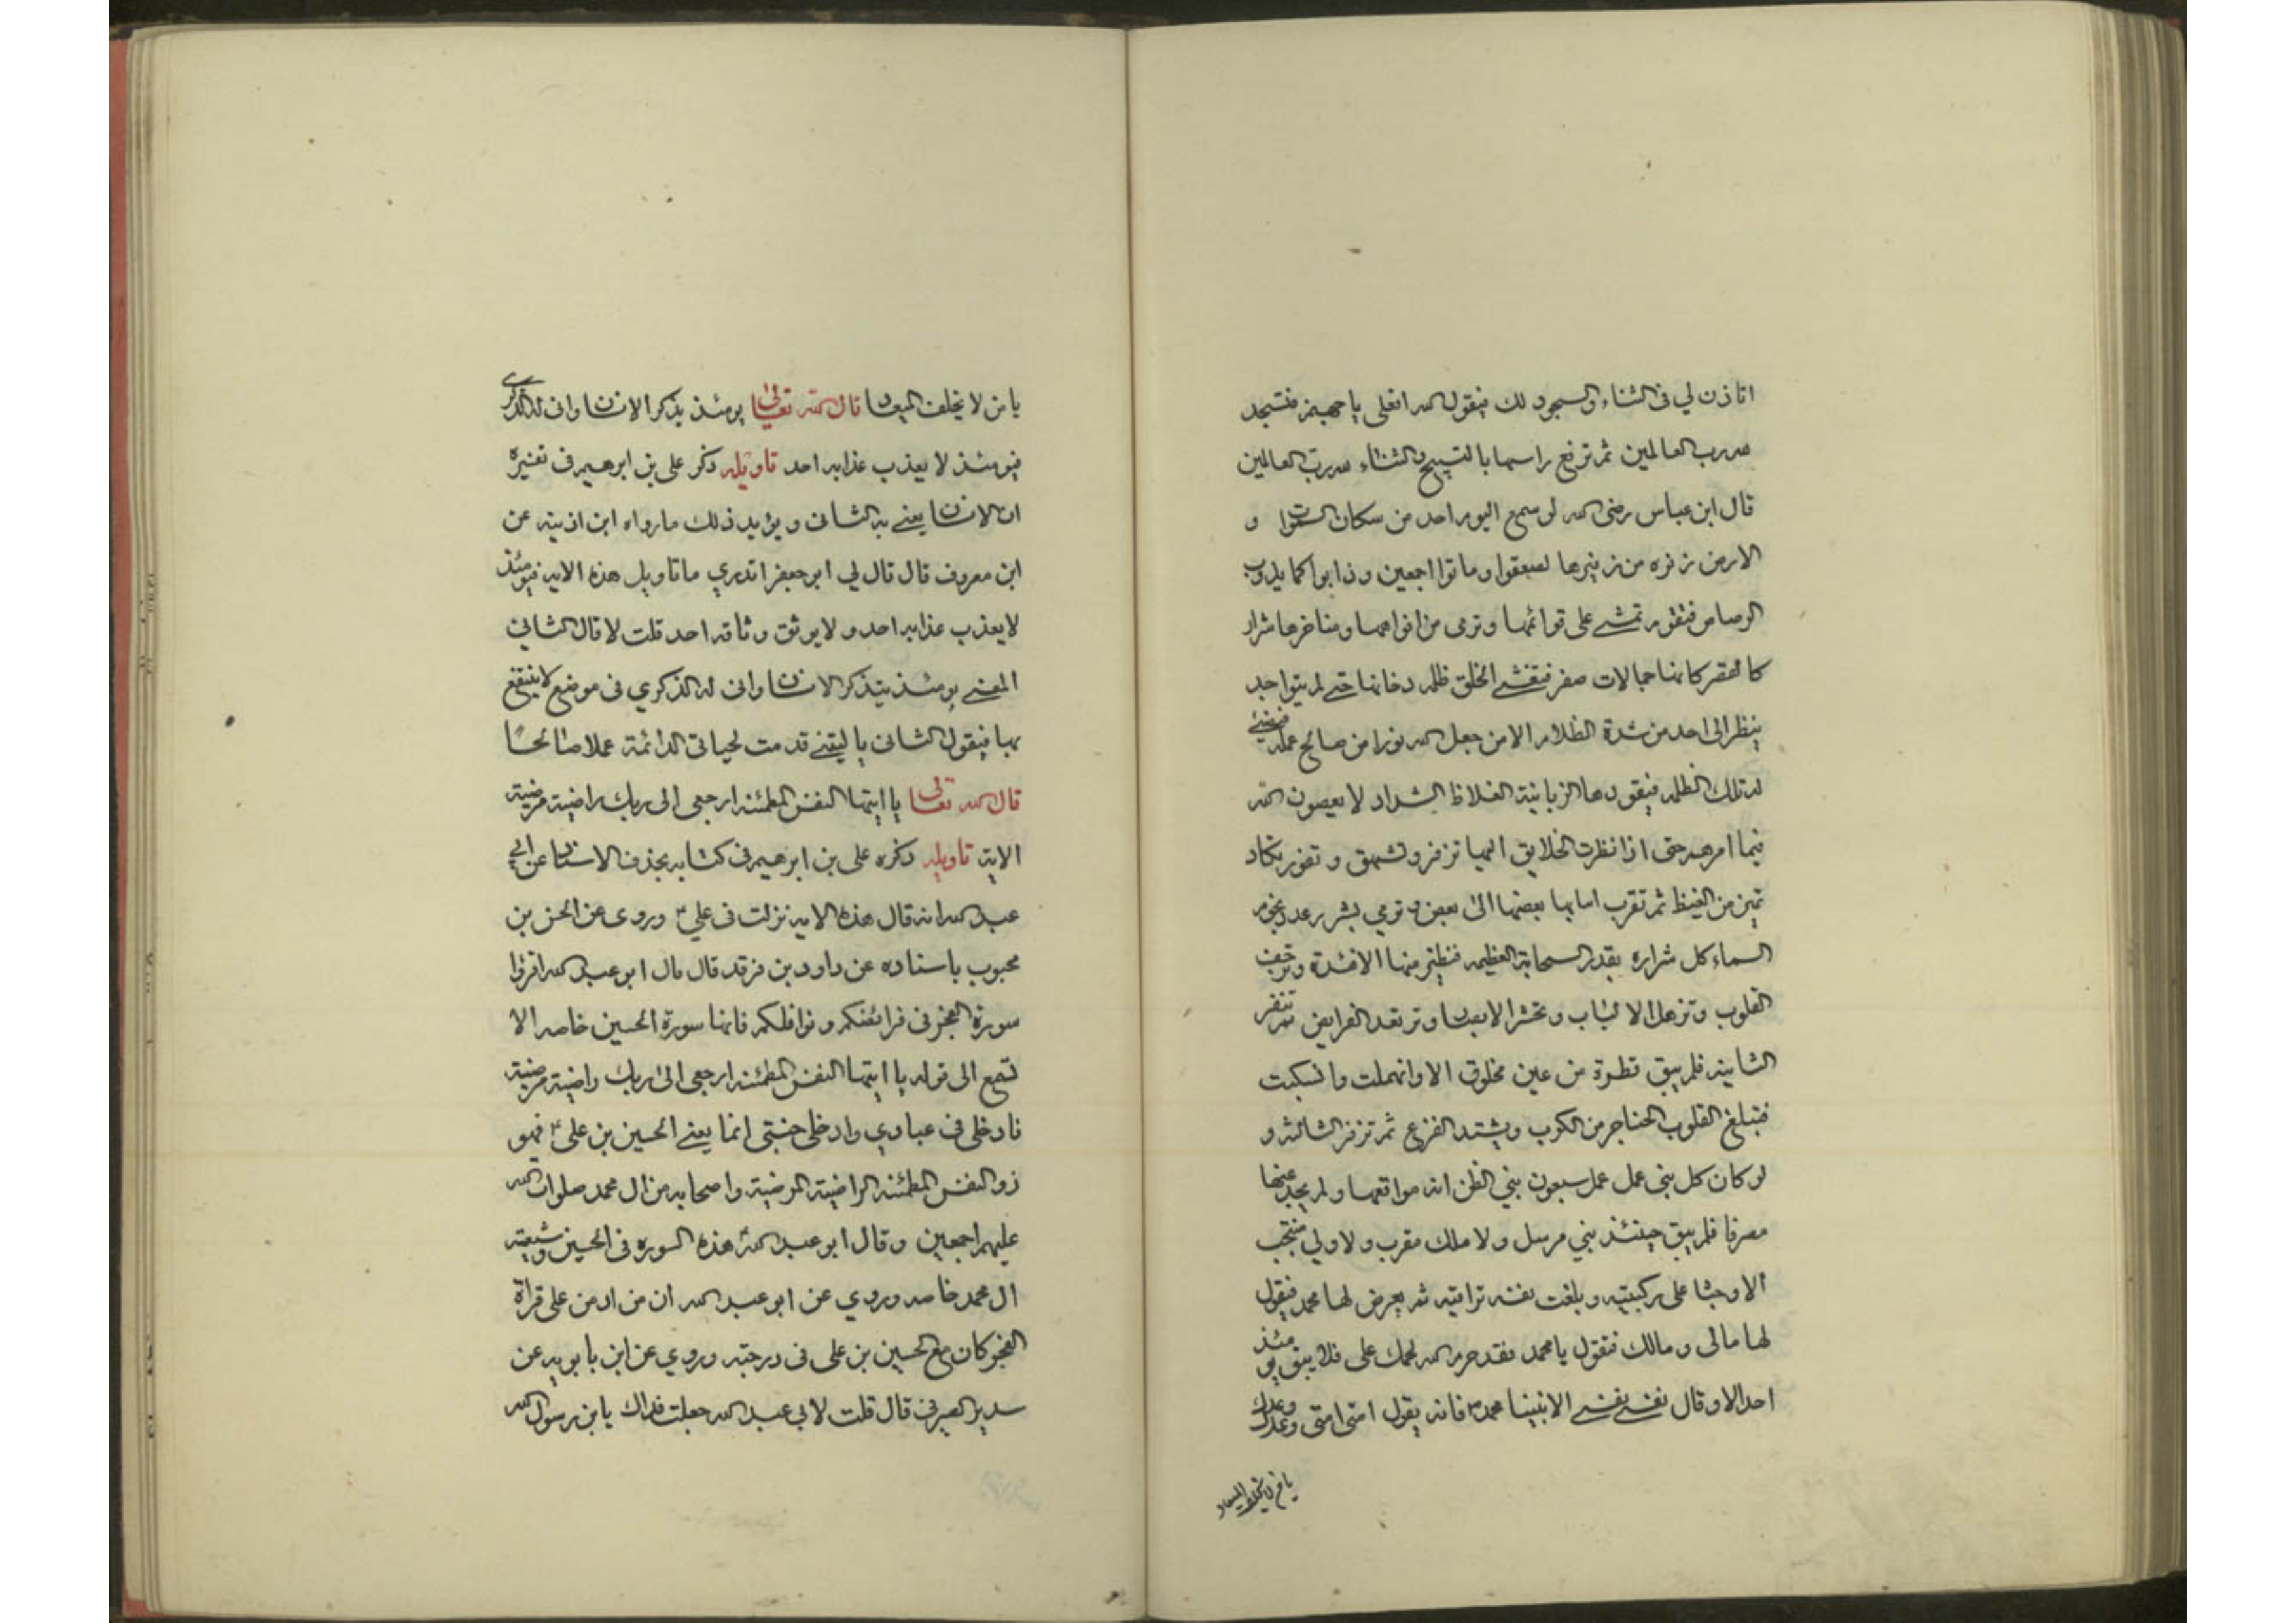 اتاذن لي فى الثناء والسجود لك فيقول الله افعلى يا جهنم فتسجد
لله رب العالمين ثم ترفع راسها بالتسبيح والثناء لله رب العالمين
قال ابن عباس رضى الله لو سمع اليوم احد من سكان السموات و
الارض زفره من زفيرها لصعقوا وماتوا اجمعين وذابوا كما يذوب
الرصاص فتقوم تمشے على قوائمها وترمى من افواهها ومناخرها شرار
كالقصر كانها جمالات صفر فتغشے الخلق ظلمه دخانها حتے لم يتواحد
ينظر الى احد من شدة الظلام الا من جعل الله نورا من صالح عمله فيضئے
له تلك الظلمه فيقودها الزبانية الغلاظ الشداد لا يعصون الله
فيما امرهم حتى اذا نظرت الخلايق اليها تزفر وتشهق وتفور تكاد
تميز من الغيظ ثم تقرب امامها بعضها الى بعض وترمي بشرر عدد نجوم
السماء كل شراره بقدر السحابة العظيمه فتطير منها الافئدة وترجف
القلوب وتزهل الالباب وتخشر الابصار وترتعد الفرايص ثم تزفر
الثانيه فلم يبق قطرة من عين مخلوق الا وانهملت وانسكبت
فتبلغ القلوب الحناجر من الكرب ويشتد الفزع ثم تزفر الثالثه و
لو كان كل بنى عمل عمل سبعون نبي الظن انه مواقعها ولم يجد عنها
مصرفا فلم يبق حينئذ نبي مرسل ولا ملك مقرب ولا ولي منتجب
الا وجثا على ركبتيه وبلغت نفسه تراقيه ثم يعرض لها محمد فيقول
لها مالى ومالك فتقول يا محمد فقد حرم الله لحمك على فلا يبقى يومئذ
احد الا وقال نفسے نفسے الا نبينا محمد ص فانه يقول امتى امتى وعدك وعدك
يا من لا يخلف الميعاد
يا من لا يخلف الميعاد قال الله تعالى يومئذ يذكر الانسان وانى له الذكرى
فيومئذ لا يعذب عذابه احد تاويله ذكر على بن ابرهيم فى تفسيره
ان الانسان يعنے به الثانى ويؤيد ذلك ما رواه ابن اذينه عن
ابن معروف قال قال لي ابو جعفر اتدري ما تاويل هذه الايه فيومئذ
لا يعذب عذابه احد ولا يوثق وثاقه احد قلت لا قال الثاني
المعنے يومئذ يتذكر الانسان وانى له الذكري فى موضع لا ينتفع
بها فيقول الثانى يا ليتنے قدمت لحياتى الدائمة عملا صالحا
قال الله تعالى يا ايتها النفس المطمئنه ارجعى الى ربك راضية مرضية
الاية تاويله ذكره على بن ابرهيم فى كتابه بحذف الاسناد عن ابي
عبد الله انه قال هذه الايه نزلت فى علي ٤ وروى عن الحسن بن
محبوب باسناده عن داود بن فرقد قال قال ابو عبد الله اقرؤا
سورة الفجر فى فرائضكم ونوافلكم فانها سورة الحسين خاصه الا
تسمع الى قوله يا ايتها النفس المطمئنه ارجعى الى ربك راضية مرضية
فادخلى فى عبادي وادخلى جنتى انما يعنے الحسين بن على ٤ فهو
ذو النفس المطمئنه الراضية المرضية واصحابه من ال محمد صلوات الله
عليهم اجمعين وقال ابو عبد الله هذه السوره فى الحسين وشيعته
ال محمد خاصه وروي عن ابو عبد الله ان من ادمن على قراة
الفجر كان مع الحسين بن على فى درجته وروي عن ابن بابويه عن
سدير الصيرفى قال قلت لابى عبد الله جعلت فداك يا بن رسول الله